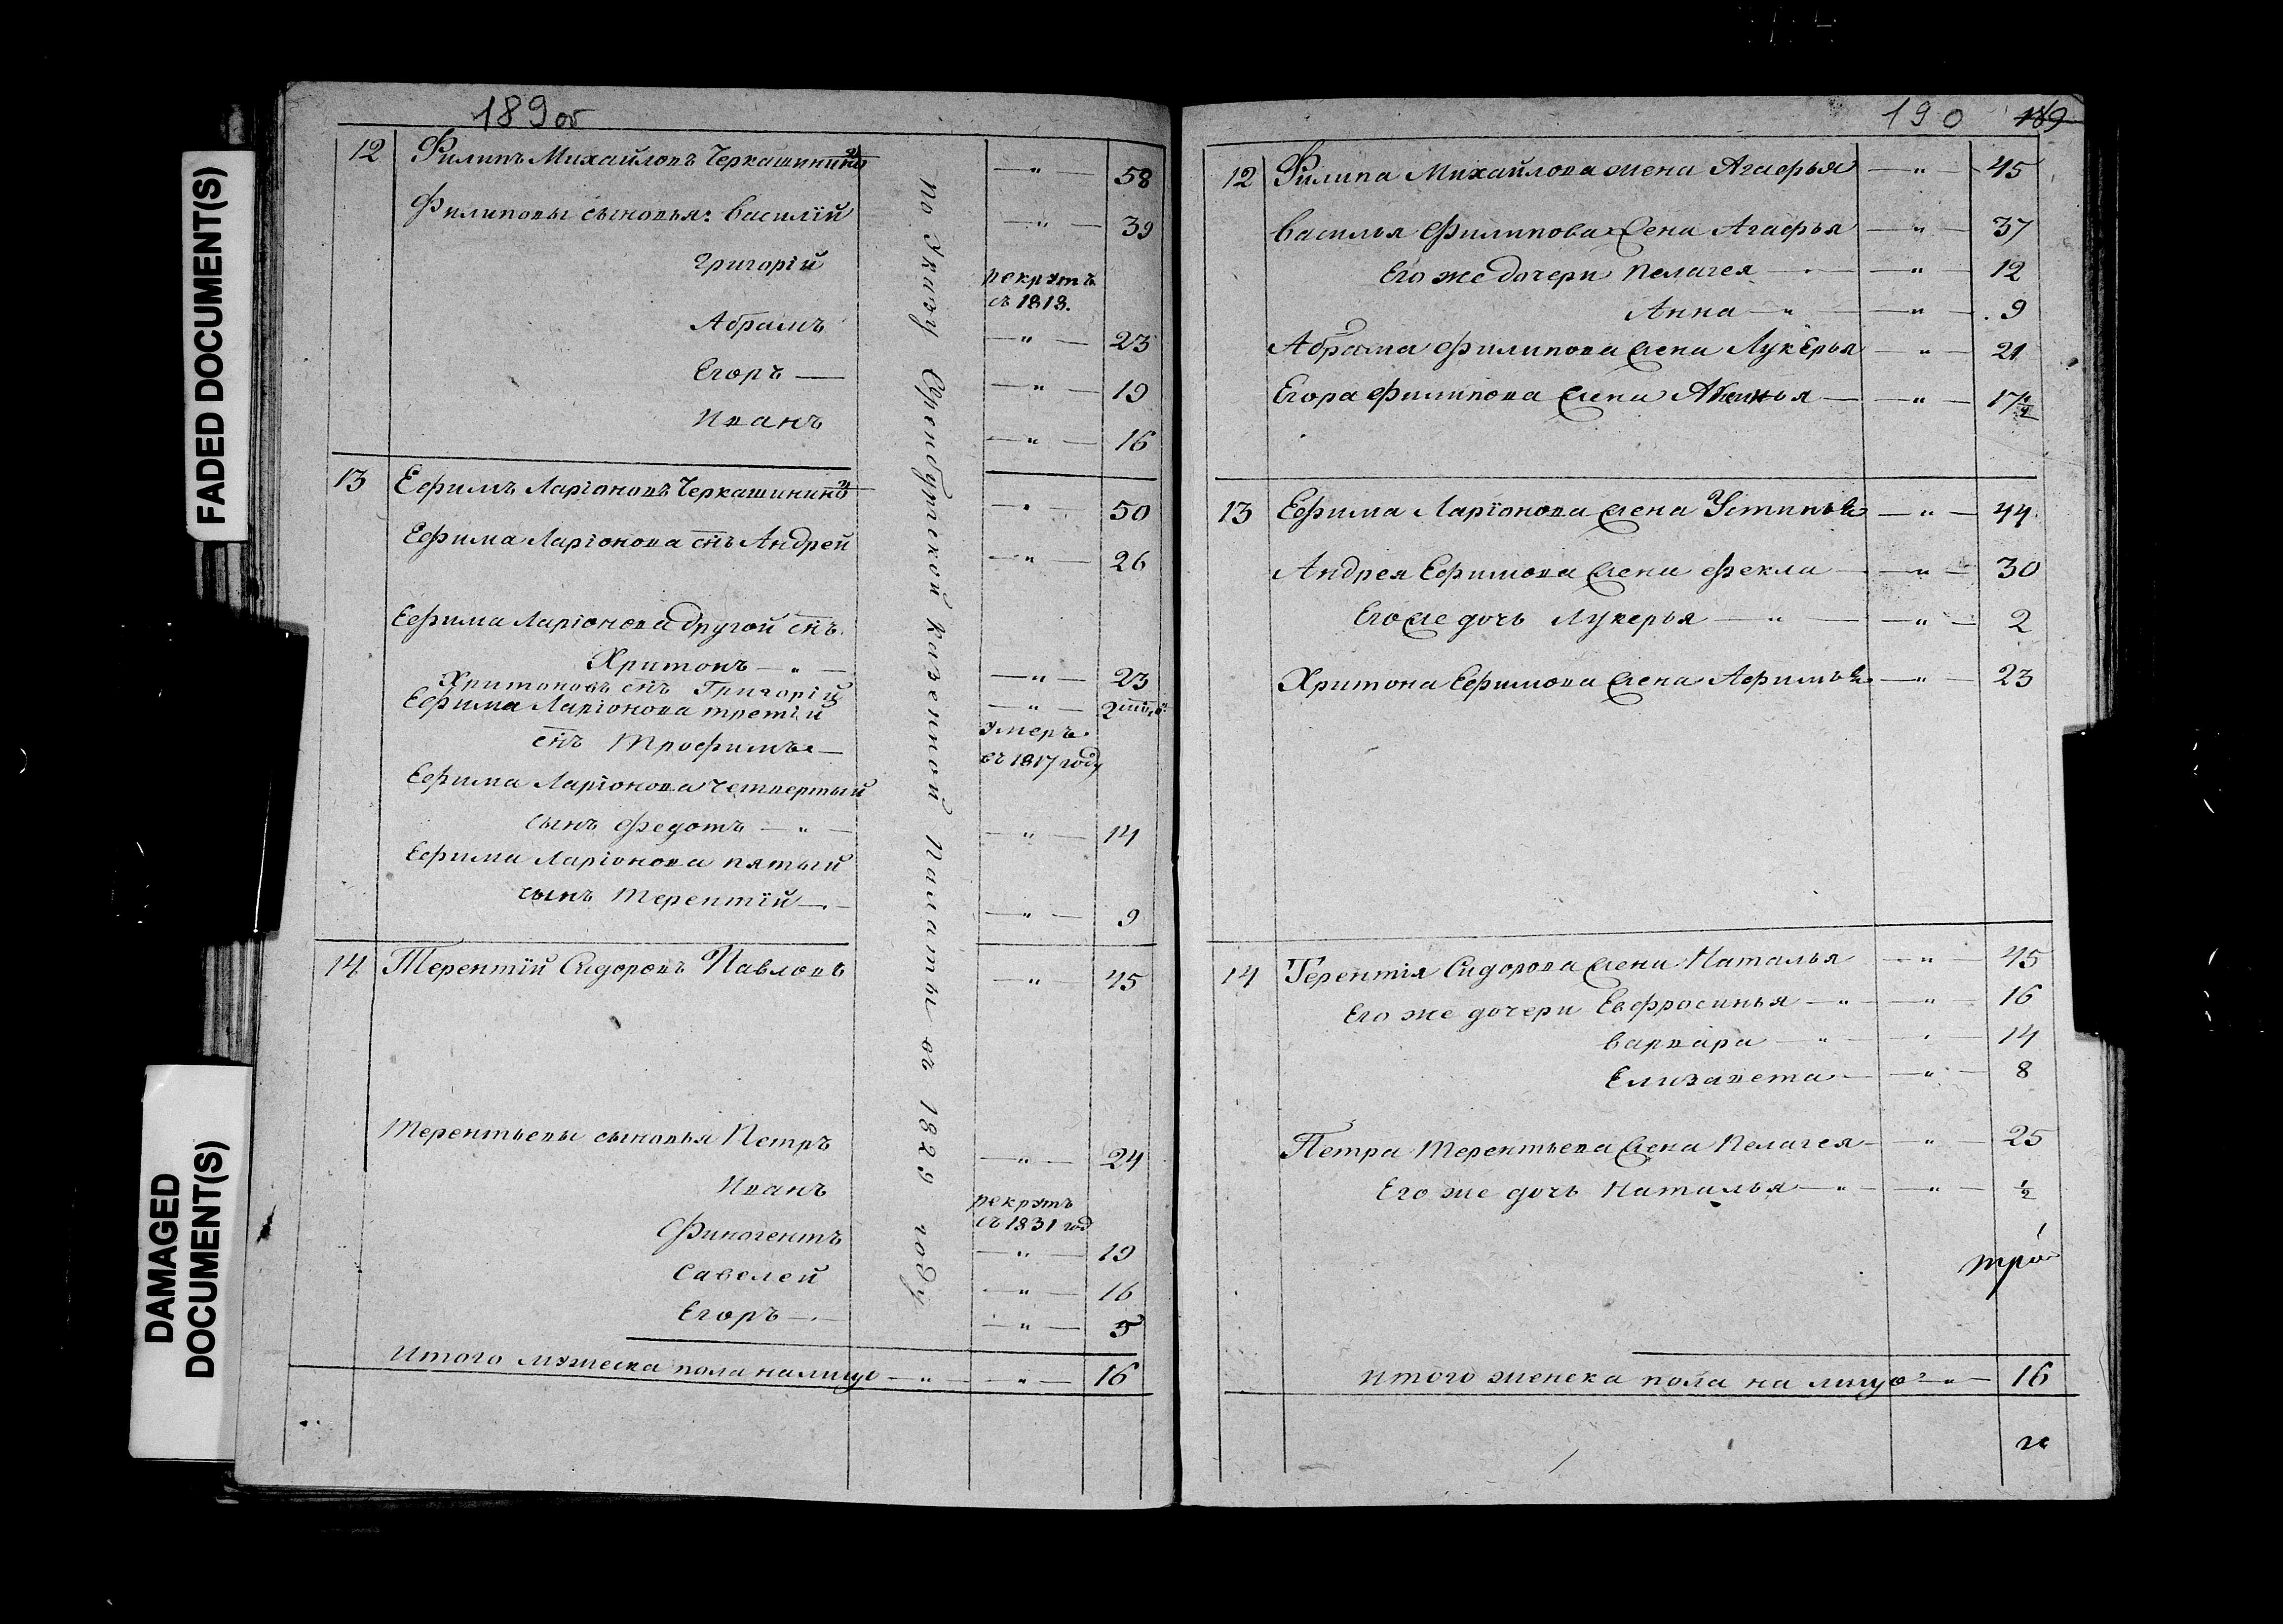 FADED DOCUMENT(S)
DAMAGED
DOCUMENT(S)
189об
12 Филипъ Михайловъ Черкашининъ — " — 58
Филиповы сыновья: Василій — " — 39
Григорій рекрутъ
съ 1818.
Абрамъ — " — 23
Егоръ — — " — 19
Иванъ — " — 16
13 Ефимъ Ларіоновъ Черкашининъ — " — 50
Ефима Ларіонова снъ Андрей — " — 26
Ефима Ларіонова другой снъ
Хритонъ — " — — " — 23
Хритоновъ снъ Григорій — " — 2
Ефима Ларіонова третій умеръ
снъ Трофимъ — въ 1817 году
Ефима Ларіонова четвертый
сынъ Федотъ — " — — " — 14
Ефима Ларіонова пятый
сынъ Терентій — — " — 9
14 Терентій Сидоровъ Павловъ — " — 45
Терентьевы сыновья Петръ — " — 24
Иванъ рекрутъ
съ 1831 год
Финогентъ — " — 19
Савелей — " — 16
Егоръ — — " — 5
Итого мужеска пола налицо — " — " — 16
по Указу Оренбургской Казенной Палаты съ 1829 году
190 189
12 Филипа Михайлова жена Агафья — " — 45
Василья Филипова жена Агафья — " — 37
Его же дочери Пелагея — " — 12
Анна — " — — " — 9
Абрама Филипова жена Лукерья — " — 21
Егора Филипова жена — " — 17
13 Ефима Ларіонова жена Устинья — " — 44
Андрея Ефимова жена Фекла — " — 30
Его же дочь Лукерья — " — — " — 2
Хритона Ефимова жена Афимья — " — 23
14 Терентія Сидорова жена Наталья — " — 45
Его же дочери Евфросинья — " — " — 16
Варвара — " — 14
Елизавета — " — 8
Петра Терентьева жена Пелагея — " — 25
Его же дочь Наталья — " — " — ½
Итого женска пола на лицо — " — 16